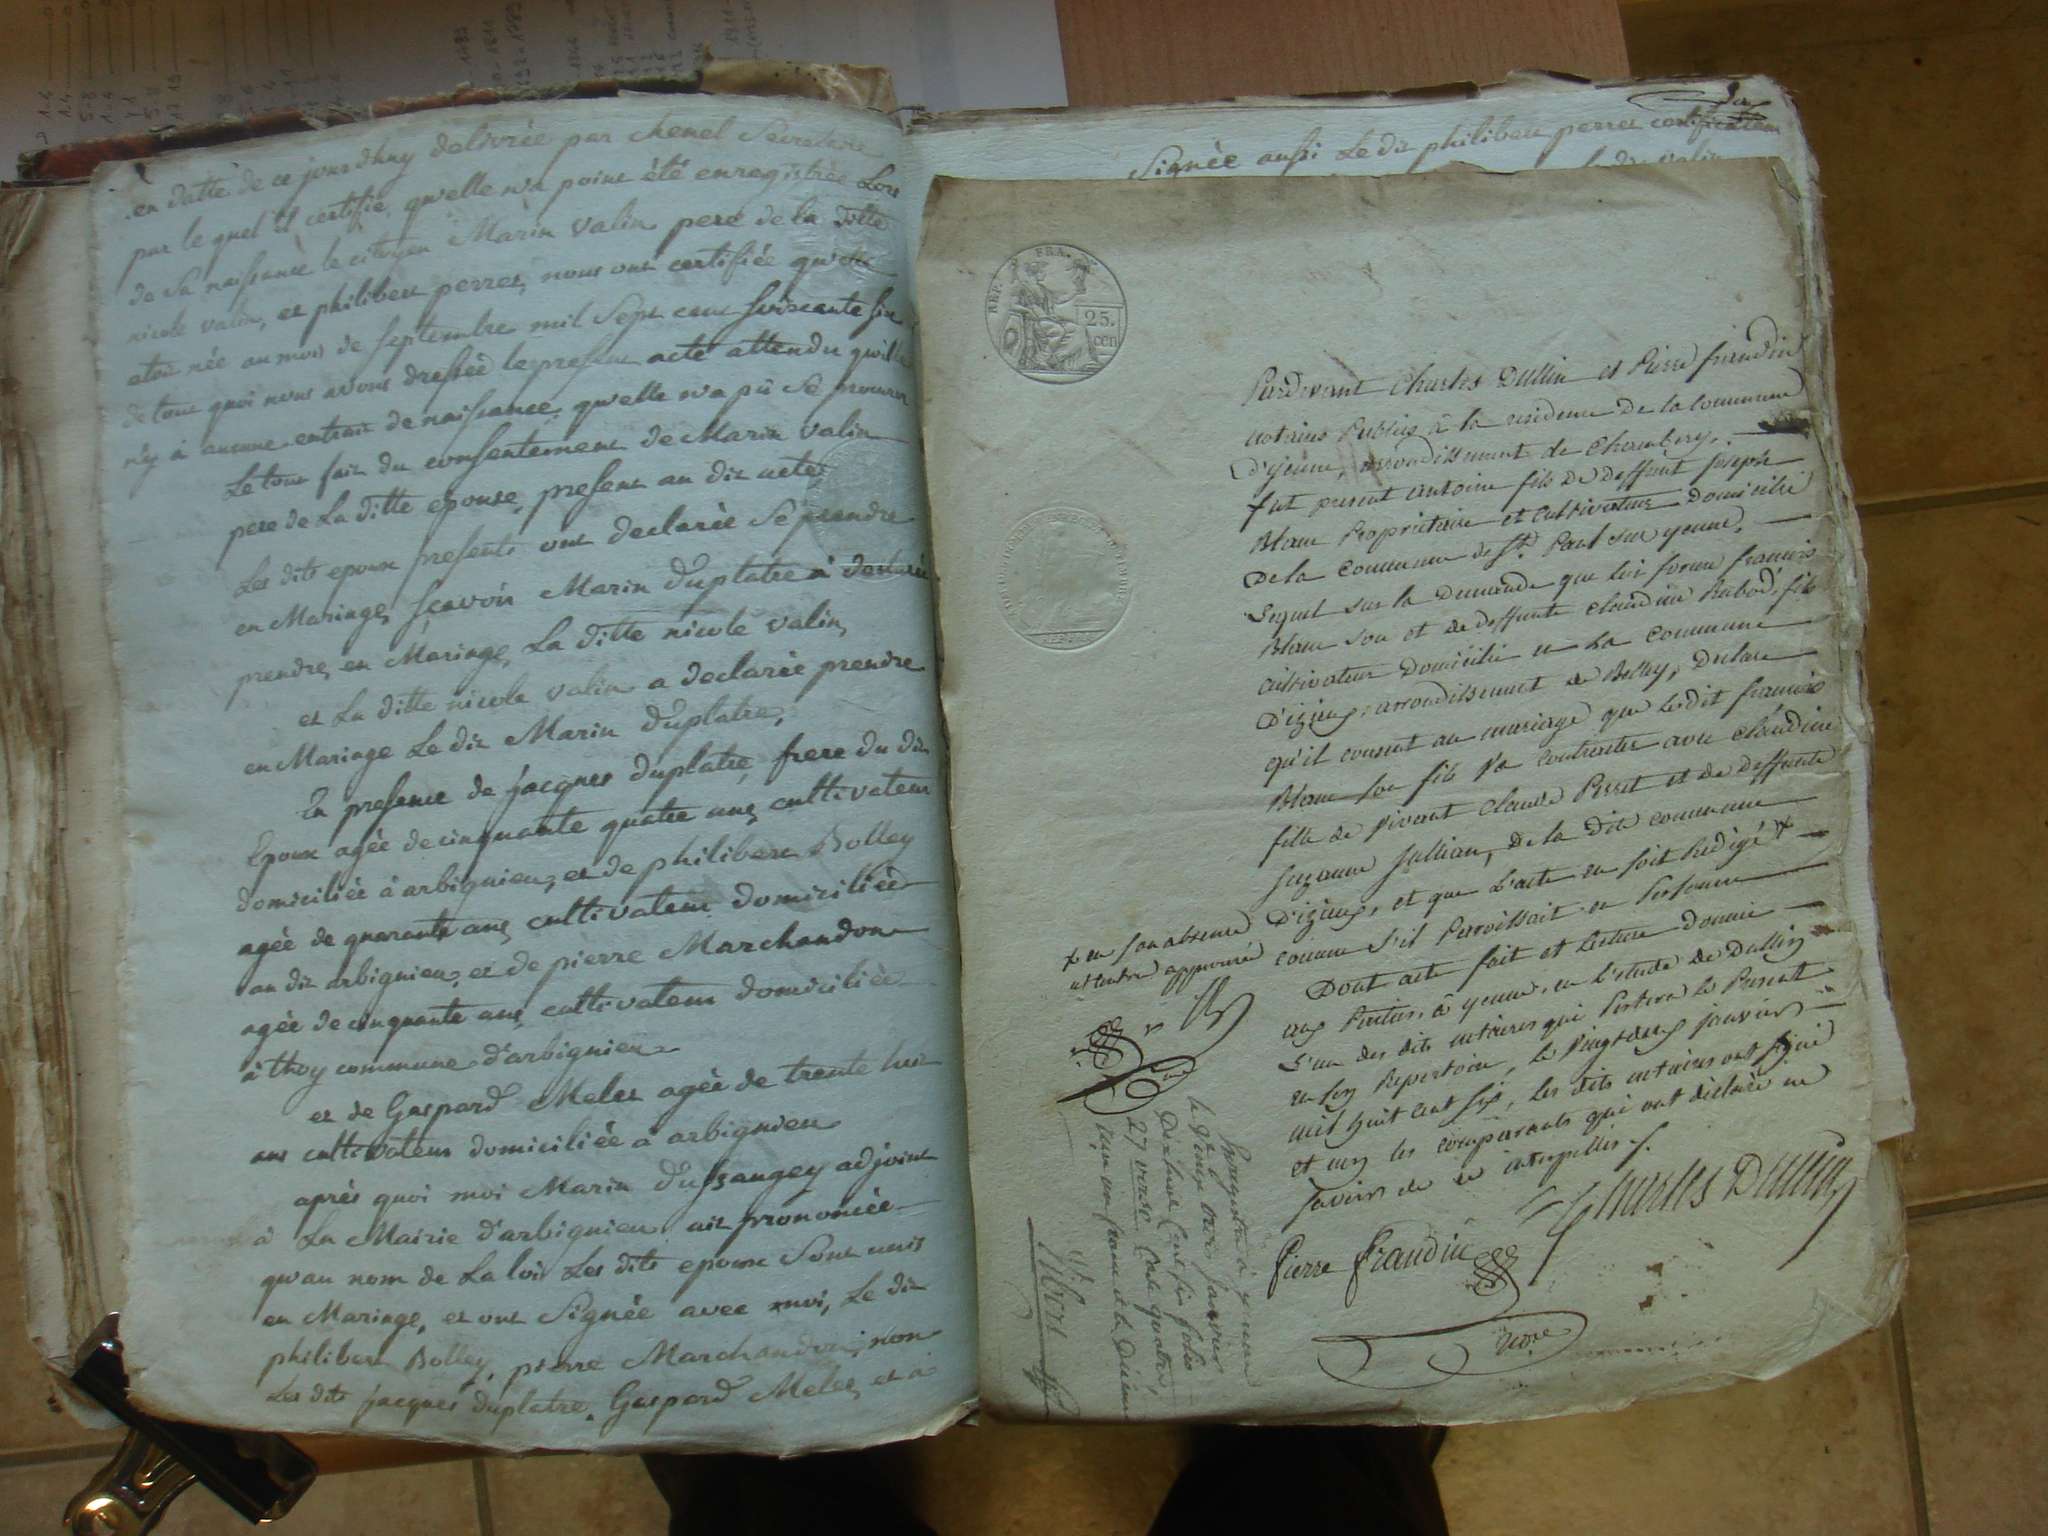 en datte de ce jourdhuy delivrée par chenel Secretaire
par le quel il certifie, qu'elle n'a point été enregistrée Lors
de Sa naissance le citoyen Marin Valin pere de la ditte
nicole valin, et philibert perret, nous ont certifiée qu'elle
etoit née au mois de septembre mil Sept cent soixante six
de tout quoi nous avons dressée le present acte attendu qu'il
n'y à aucune extrait de naissance, qu'elle n'a pû Se procurer
Le tout fait du consentement de Marin Valin
pere de La ditte epouse, present au dit acte,
Les dits epoux presents ont declarée Se prendre
en Mariage, sçavoir Marin Duplatre à declarée
prendre en Mariage, La ditte nicole valin,
et La ditte nicole valin a declarée prendre
en Mariage Le dit Marin Duplatre,
En presence de jacques duplatre frere du dit
Epoux agée de cinquante quatre ans cultivateur
domiciliée à arbignieu, et de philibert Bolley
agée de quarante ans cultivateur domiciliée
au dit arbignieu, et de pierre Marchandon
agée de cinquante ans cultivateur domiciliée
à thoy commune d'arbignieu
et de Gaspard Melet agée de trente huit
ans cultivateur domiciliée à arbignieu
après quoi moi Marin Dufsaugey adjoint
à La Mairie d'arbignieu, ait prononcée
qu'au nom de La loi Les dits epoux Sont unis
en Mariage, et ont Signée avec moi, Le dit
philibert Bolley, pierre Marchandon, non
Les dits jacques duplatre, Gaspard Melet, et à
Signée aussi Le dit philibert perret certificateur
le dit valin
REP. FRA.
25.
cen
Pardevant Charles Dullin et Pierre frandin
notaires Publics à la residence De la Commune
D'yenne, arrondissement de Chambery.
fut present antoine fils De deffunt joseph
Blanc Propriétaire et cultivateur Domicilié
De la Commune de St. Paul sur yenne,
Lequel sur la Demande que lui forme francois
Blanc son et de deffunte claudine Rabod fils
cultivateur Domicilié en La Commune
D'izieux, arrondissement de Belley, Declare
qu'il consent au mariage que ledit francois
Blanc son fils va Contracter avec claudine
fille de vivant claude Perret et de deffunte
suzanne Jullian, De la Dite Commune
D'izieux, et que l'acte en soit Redigé +
+ en son absence
et l'entre approuvé
comme s'il Parroissait en Personne
Dont acte fait et lecture Donnée
aux Parties, à yenne, en l'etude de Dullin
L'un des dits notaires qui Portera le Present
en son Repertoire, le vingt deux janvier
mil huit cent six, les dits notaires ont signé
et non les comparants qui ont déclaré ne
savoir de ce interpellés.
Charles Dullin
Pierre frandin
nore
Enregistré à yenne
le vingt trois janvier
Dix huit Cent six folio
27 verso Case quatre,
reçu un franc et le Dixieme